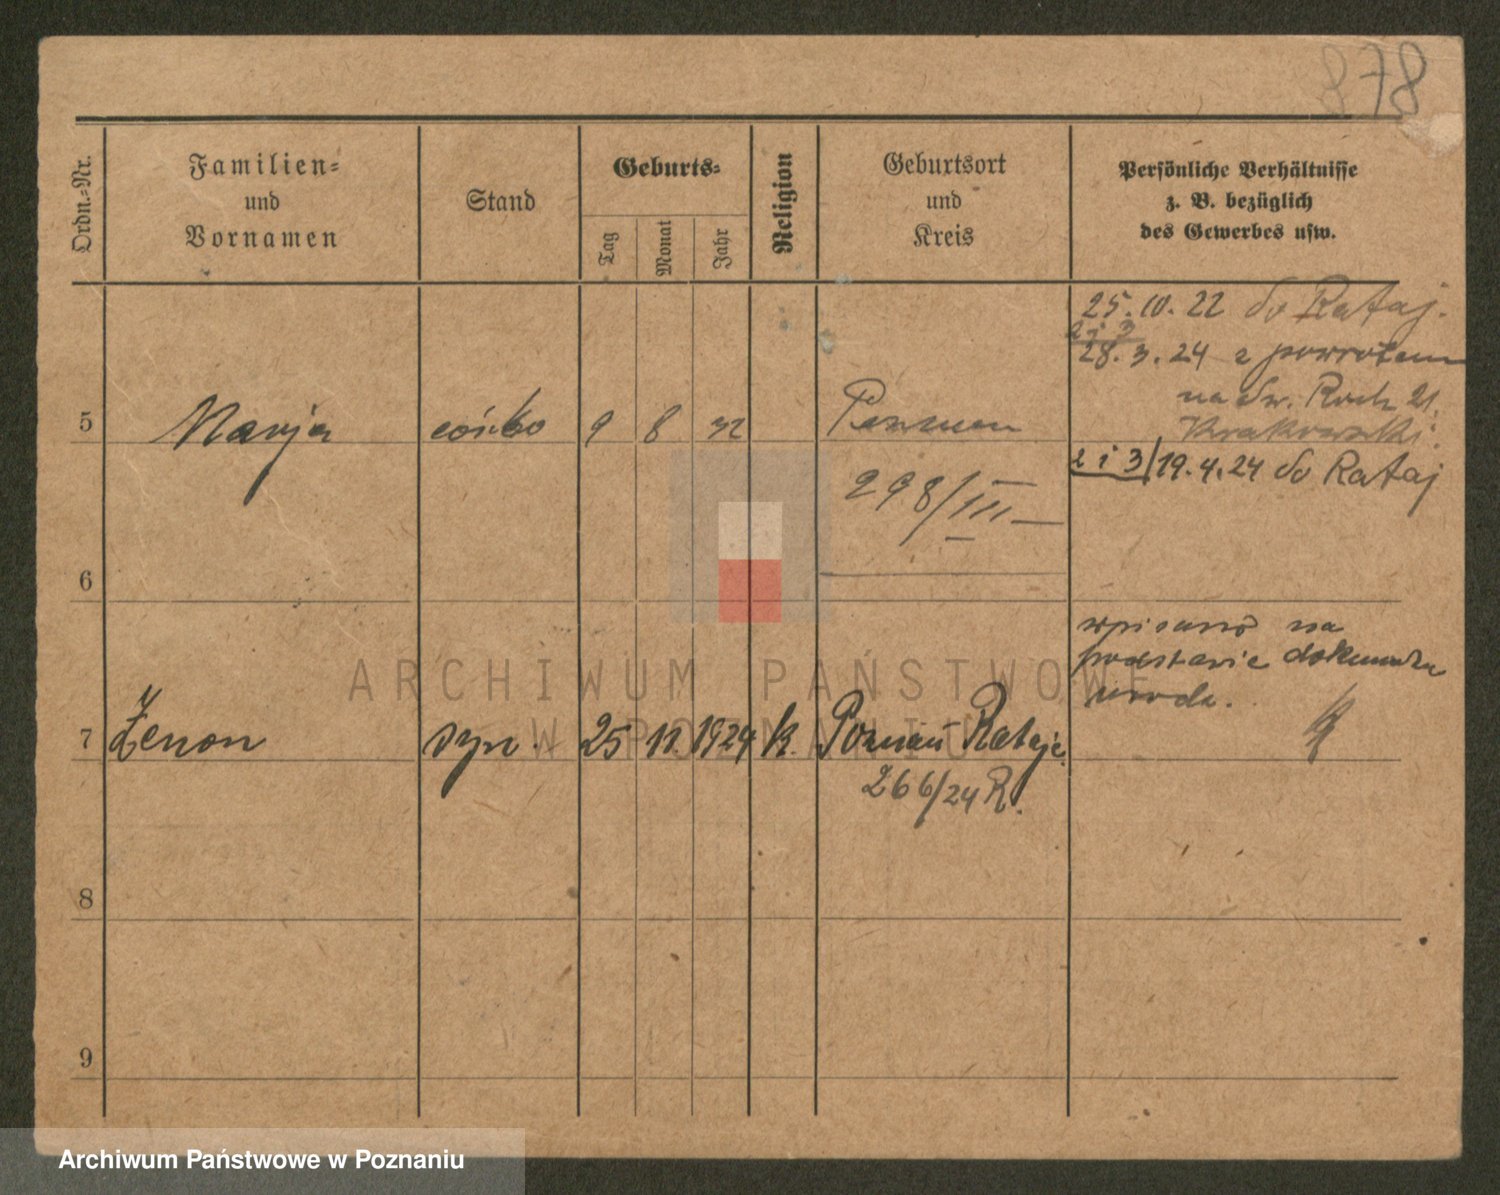 878
Ordn.-Nr.
Familien-
und
Vornamen
Stand
Geburts-
Tag
Monat
Jahr
Religion
Geburtsort
und
Kreis
Persönliche Verhältnisse
z. B. bezüglich
des Gewerbes usw.
25. 10. 22 do Rataj.
2 i 3
28. 3. 24 z powrotem
na Św. Roch 21.
Krakowski.
5 Marja córka 9 8 22 Poznań
2 i 3 / 19. 4. 24 do Rataj
298/III
6
wpisano na
podstawie dokumentu
urodz.
7 Zenon syn. 25 11. 1924 k. Poznań Rataje.
266/24 R.
8
9
ARCHIWUM PAŃSTWOWE
W POZNANIU
Archiwum Państwowe w Poznaniu